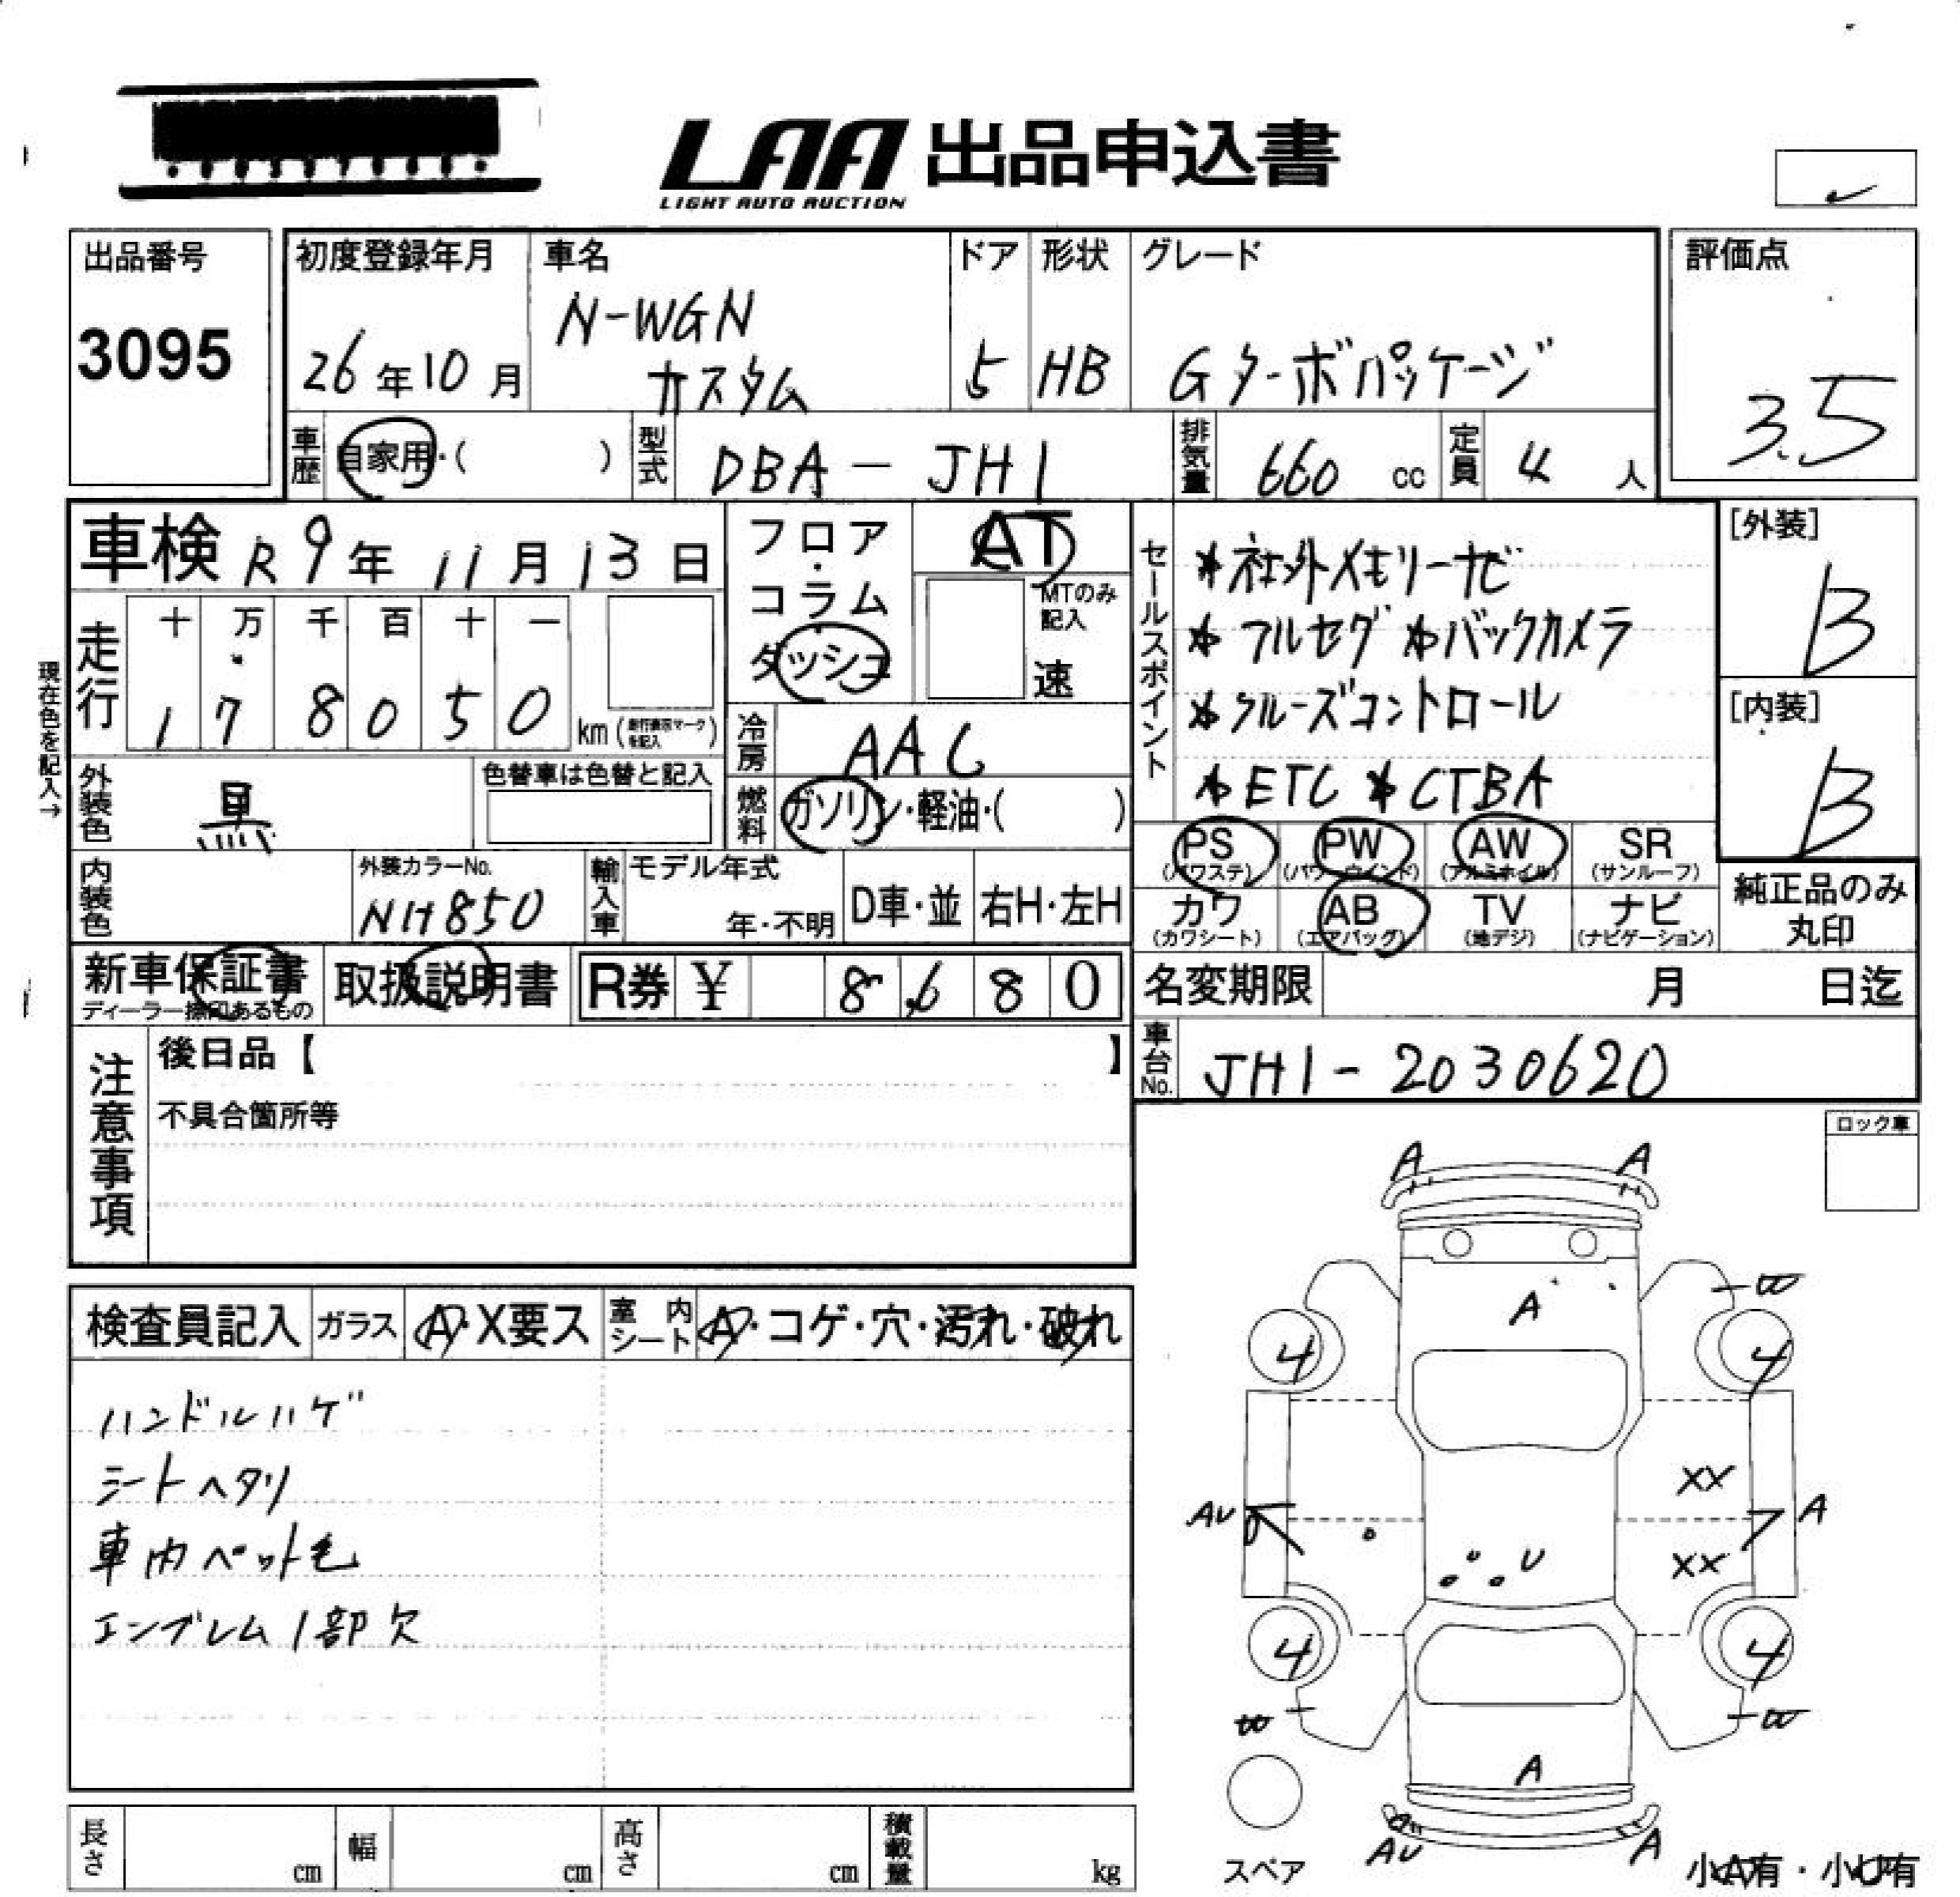 LAA 出品申込書
LIGHT AUTO AUCTION
出品番号
3095
初度登録年月
26年10月
車名
N-WGN
カスタム
ドア
5
形状
HB
グレード
Gターボパッケージ
評価点
3.5
車歴
自家用・( )
型式
DBA-JH1
排気量
660 cc
定員
4 人
車検 R9年11月13日
フロア・コラム
ダッシュ
AT
MTのみ記入
速
セールスポイント
*社外メモリーナビ
*フルセグ *バックカメラ
*クルーズコントロール
*ETC *CTBA
[外装]
B
[内装]
B
現在色を記入→
走行
十 万 千 百 十 一
1 7 8 0 5 0 km (走行表示マークを記入)
冷房
AAC
外装色
黒
色替車は色替と記入
燃料
ガソリン・軽油・( )
PS (パワステ)
PW (パワーウインド)
AW (アルミホイル)
SR (サンルーフ)
カワ (カワシート)
AB (エアバッグ)
TV (地デジ)
ナビ (ナビゲーション)
純正品のみ
丸印
内装色
外装カラーNo.
NH850
輸入車
モデル年式
年・不明
D車・並
右H・左H
新車保証書
ディーラー捺印あるもの
取扱説明書
R券 ¥ 8,680
名変期限 月 日迄
車台No.
JH1-2030620
注意事項
後日品【 】
不具合箇所等
ロック車
検査員記入
ガラス
A・X要ス
室内シート
A・コゲ・穴・汚れ・破れ
ハンドルハゲ
シートヘタリ
車内ペット毛
エンブレム1部欠
A A
A
4 4
XX
AU A
U
XX
4 4
A
AU A
スペア
小A有・小U有
長さ cm
幅 cm
高さ cm
積載量 kg